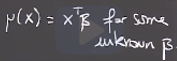 μ(x) = xᵀβ for some
unknown β.